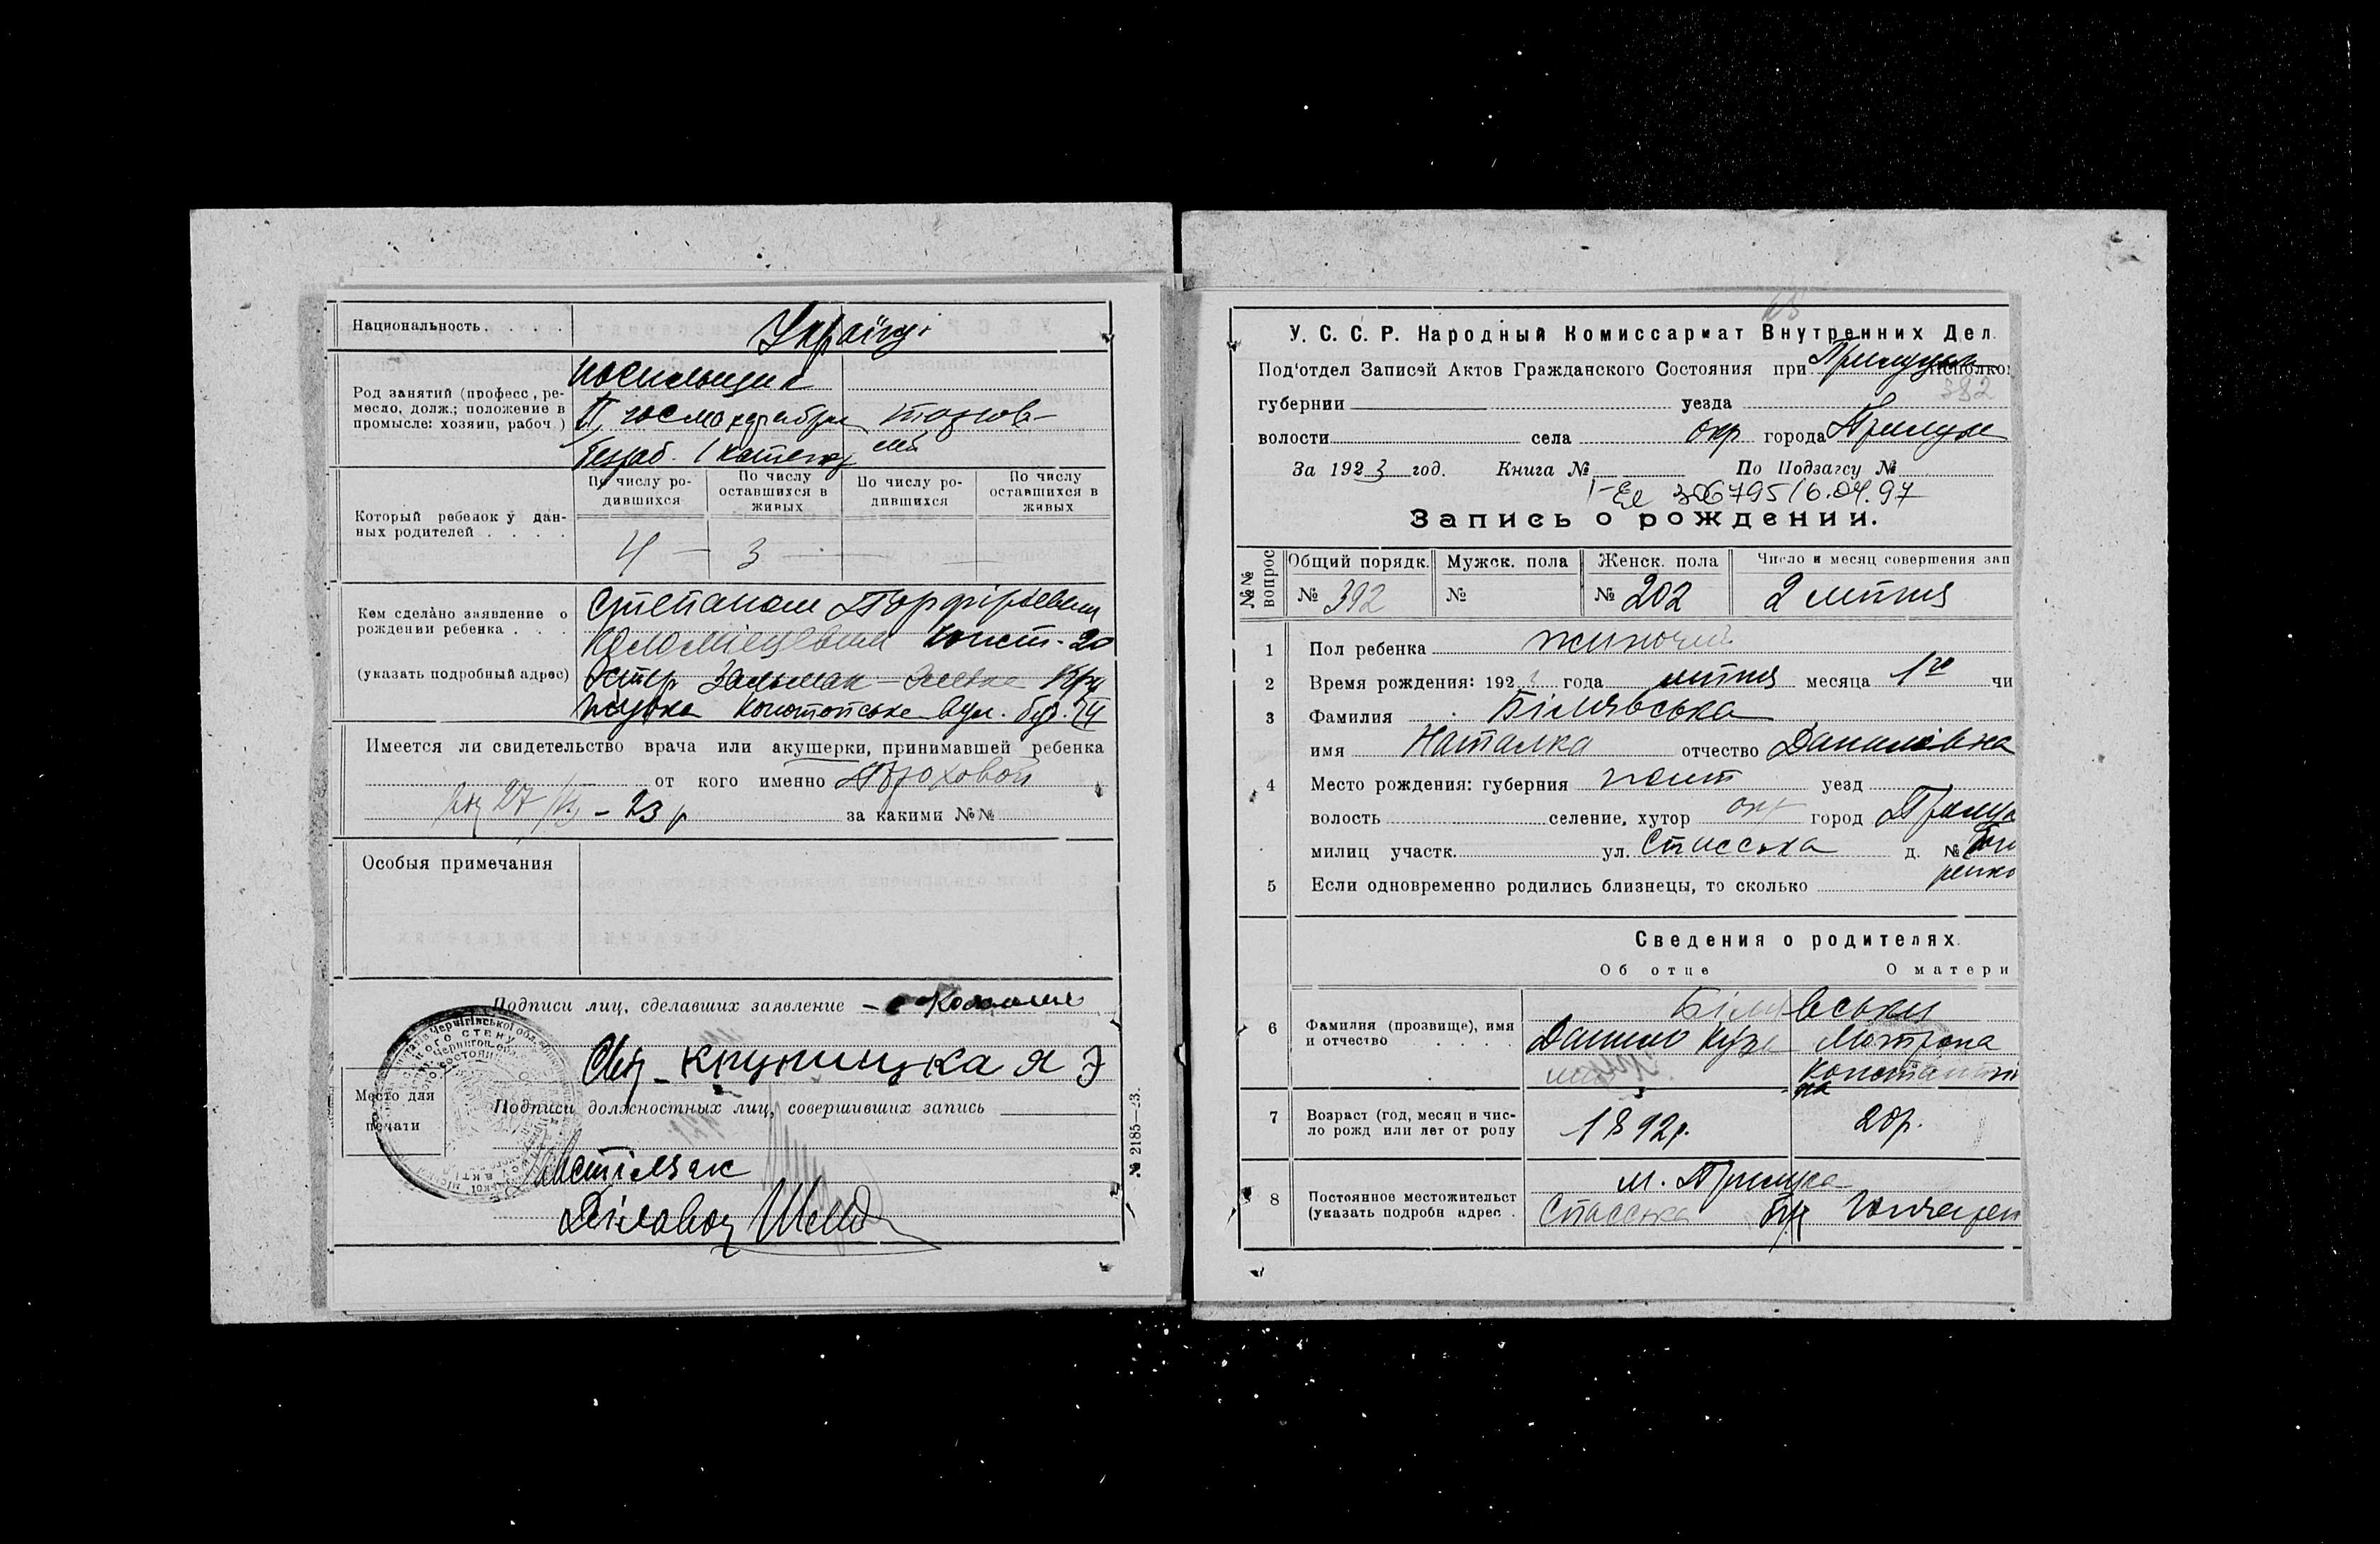 Национальность
Україці
Род занятий (професс, ре-
месло, долж.; положение в
промысле: хозяин, рабоч.)
носильщик
Безраб. 1 катег
Который ребенок у дан-
ных родителей
По числу ро-
дившихся
По числу
оставшихся в
живых
По числу ро-
дившихся
По числу
оставшихся в
живых
4 — 3 —
Кем сделано заявление о
рождении ребенка
(указать подробный адрес)
Степаном Порфірьевым
Коломієцевым Конст. 20
Естер Зальман
Конотопська вул. буд.
Имеется ли свидетельство врача или акушерки, принимавшей ребенка
от кого именно
27/VI – 23 р за какими №№
Особыя примечания
Подписи лиц, сделавших заявление –
Я Э
Подписи должностных лиц, совершивших запись
Место для
печати
Діловод
№ 2185—23.
У. С. С. Р. Народный Комиссариат Внутренних Дел.
Под'отдел Записей Актов Гражданского Состояния при Прилуцьк исполко
губернии уезда
382
волости села окр города Прилуки
За 1923 год. Книга № По Подзагсу №
306795 16.04.97
Запись о рождении.
№№ вопрос
Общий порядк. Мужск. пола Женск. пола Число и месяц совершения зап
№ 392 № № 202 2 липня
1 Пол ребенка жиночий
2 Время рождения: 1923 года липня месяца 1го чи
3 Фамилия Білявська
имя Наталка отчество Даниловна
4 Место рождения: губерния Полт уезд
волость селение, хутор окр город Прилу
милиц участк. ул. Спасська д. №
ренко
5 Если одновременно родились близнецы, то сколько
Сведения о родителях.
Об отце О матери
Білявськи
6 Фамилия (прозвище), имя
и отчество
Данило Кузь
Мотрона
Константи
на
7 Возраст (год, месяц и чис-
ло рожд или лет от роду
1892р. 20р.
8 Постоянное местожительст
(указать подробн адрес.
м. Прилука
Спасська буд Гончарен